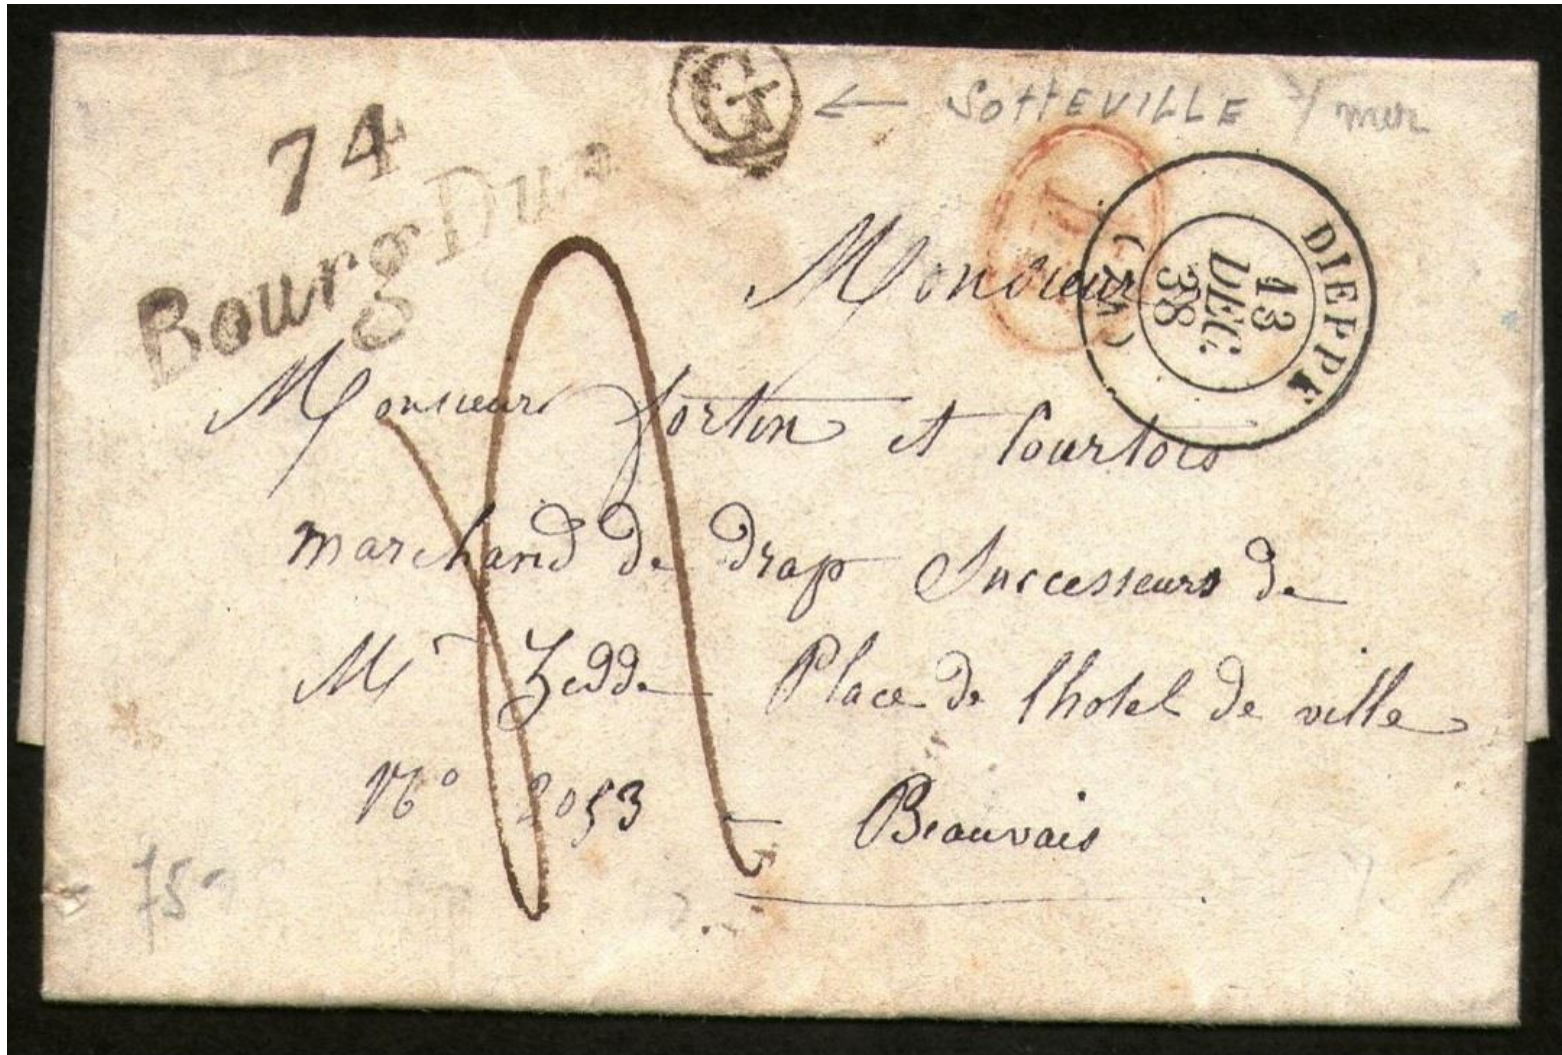 G ← SOTTEVILLE s/ mer
74
Bourg Dun
DIEPPE
13
DEC.
38
(74)
Monsieur
Monsieur fortin et Courtois
marchand de drap Successeurs de
Mr Zedde Place de lhotel de ville
No 2053 – Beauvais
75